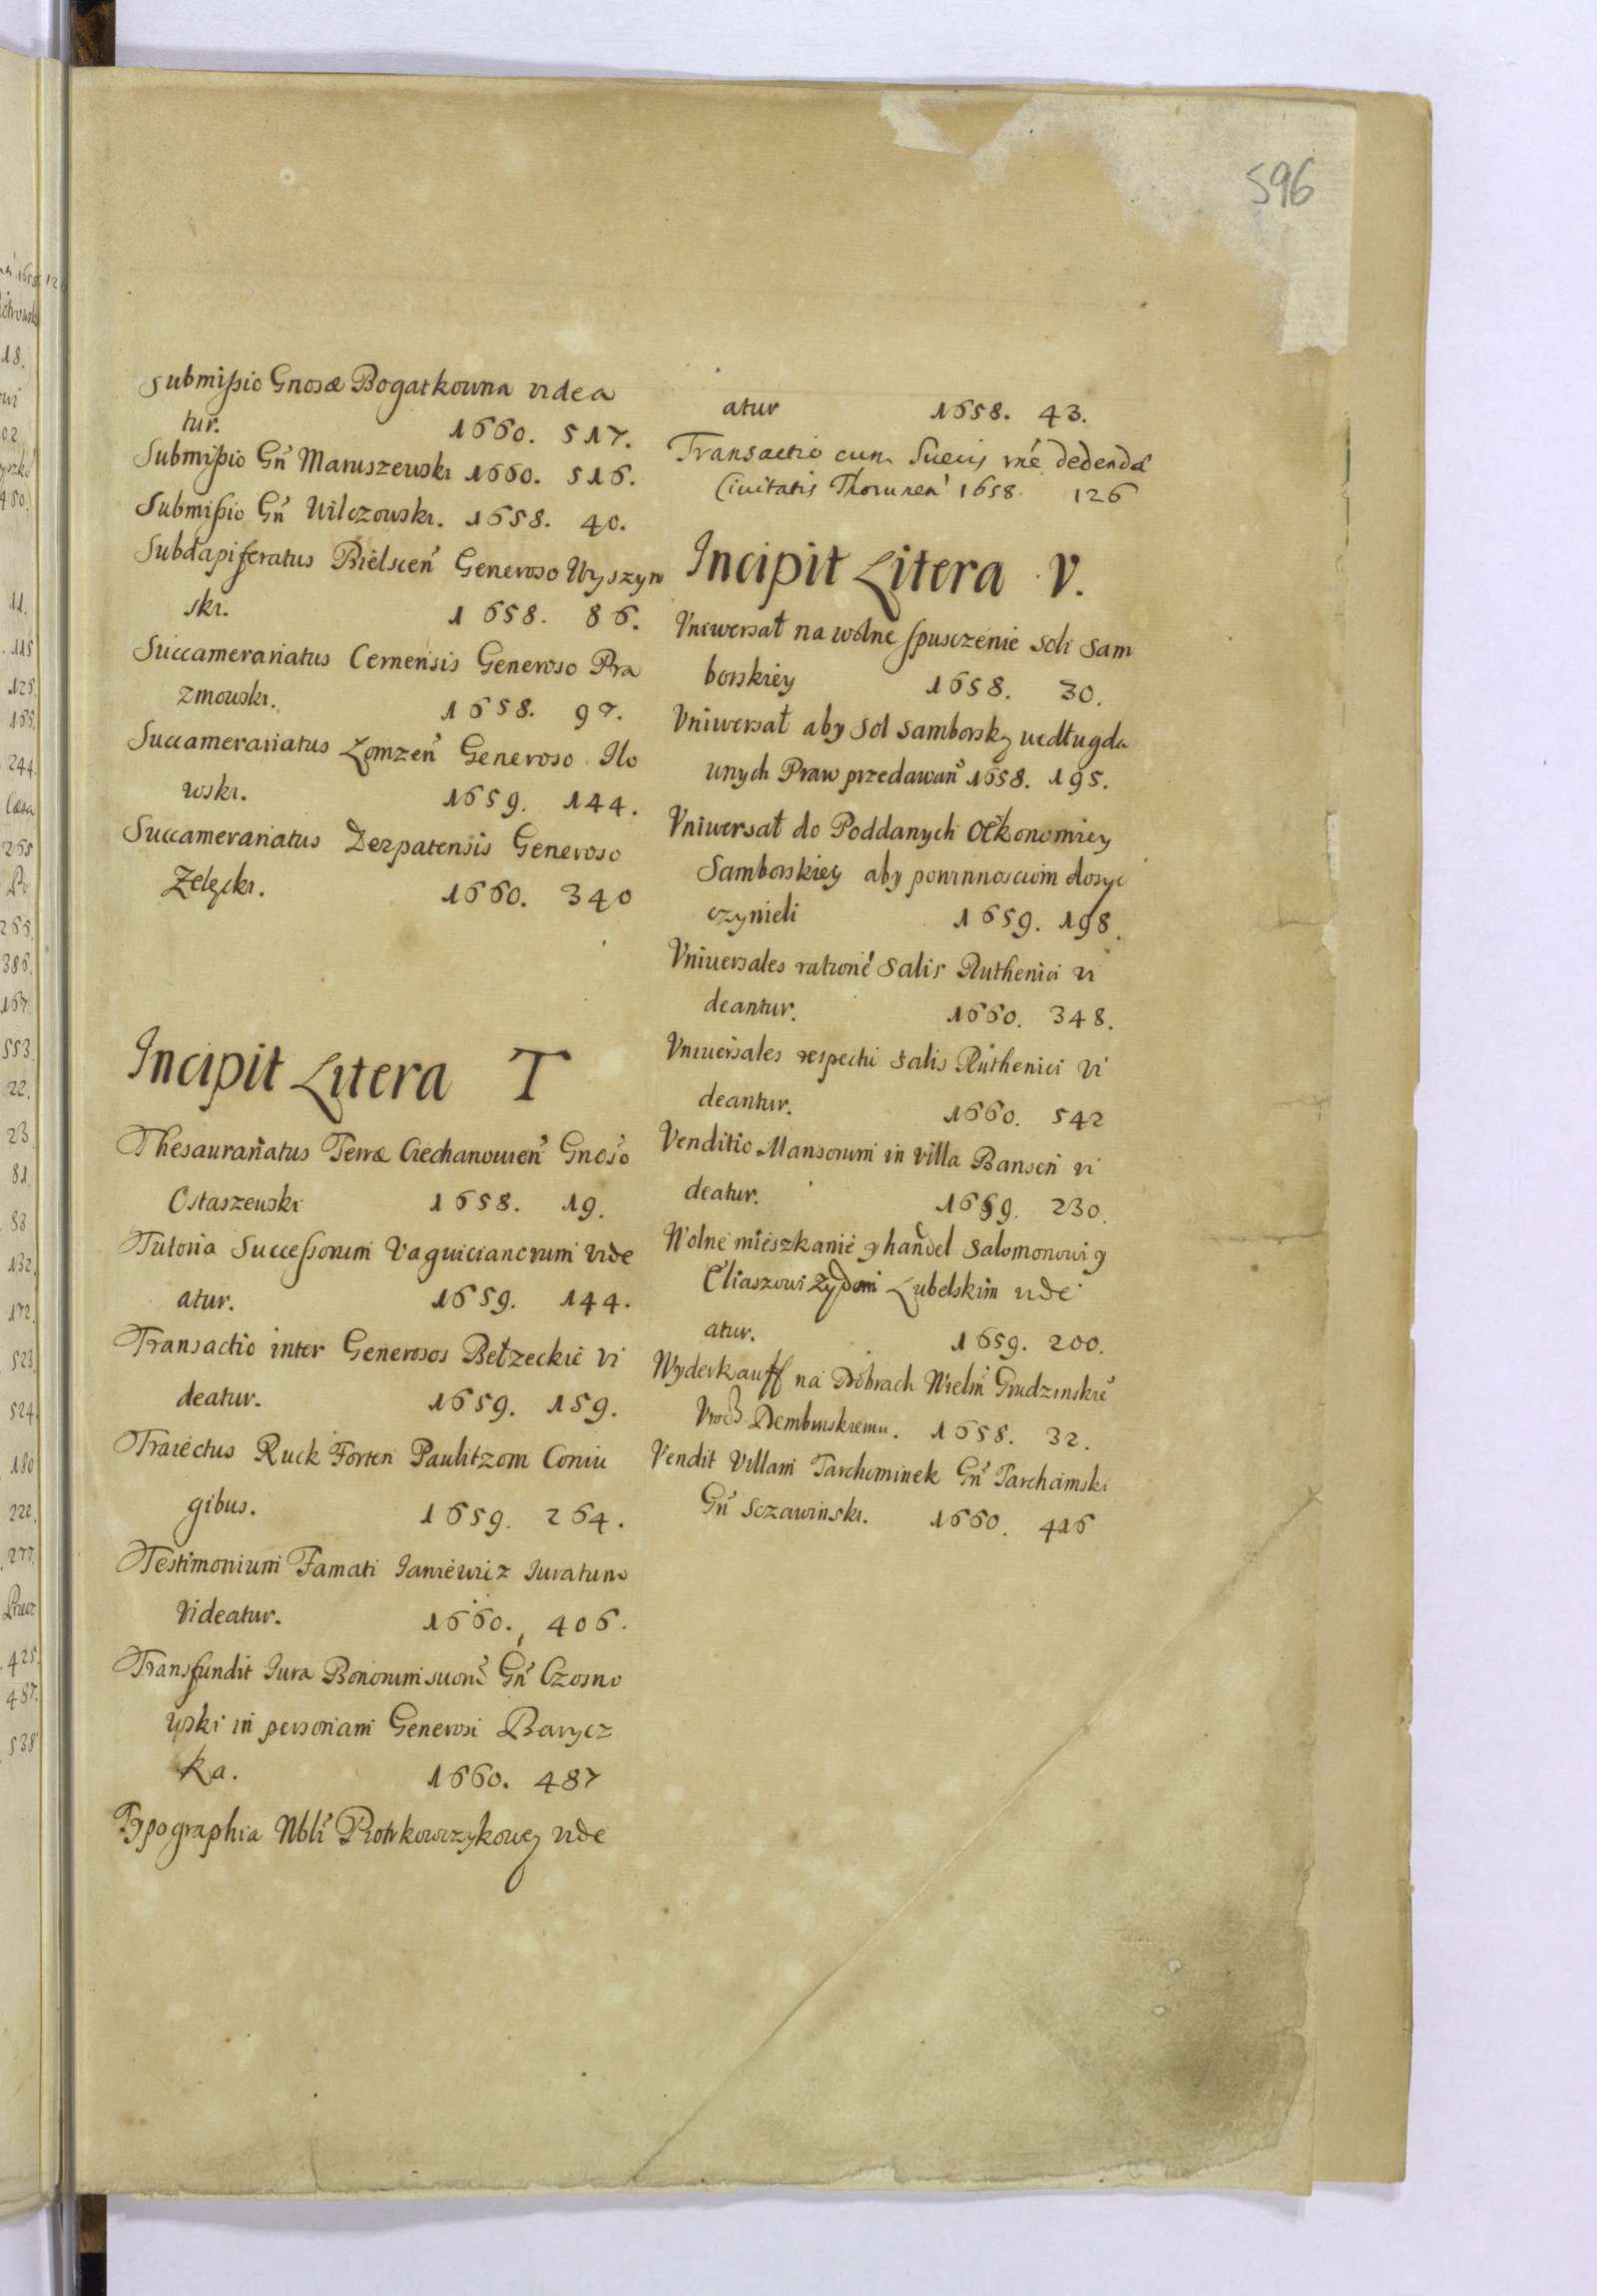 596
Submißio Gnosæ Bogatkowna videa
tur. 1660. 517.
Submißio Gn̄ Maruszewski 1660. 516.
Submißio Gn̄ Wilczowski. 1658. 40.
Subdapiferatus Bielscen̄ Generoso Wyszyn
ski. 1658. 86.
Succamerariatus Cernensis Generoso Pra
zmowski. 1658. 97.
Succamerariatus Łomzen̄ Generoso Ilo
wski. 1659. 144.
Succamerariatus Derpatensis Generoso
Zelęcki. 1660. 340
Incipit Litera T
Thesaurariatus Terræ Ciechanouien̄ Gnoso
Ostaszewski 1658. 19.
Tutoria Successorum Vaguicianorum vide
atur. 1659. 144.
Transactio inter Generosos Bełzeckie vi
deatur. 1659. 159.
Traiectus Ruck Forten Paulitzom Coniu
gibus. 1659. 264.
Testimonium Famati Janiewicz Juratum
videatur. 1660. 406.
Transfundit Jura Bonorum suor̄ Gn̄ Czosno
wski in personam Generosi Barycz
ka. 1660. 487
Typographia Nbli Piotrkowczykowey vide
atur 1658. 43.
Transactio cum Suecis rn̄e dedendæ
Civitatis Thorunen̄ 1658. 126
Incipit Litera V.
Vniwersał na wolne spusczenie soli Sam
borskiey 1658. 30.
Vniwersał aby sol Samborską według da
wnych Praw przedawan̄o 1658. 195.
Vniwersał do Poddanych Oekonomiey
Samborskiey aby powinnosciom dosyc
czynieli 1659. 198.
Vniuersales ratione Salis Ruthenici vi
deantur. 1660. 348.
Vniuersales respectu salis Ruthenici vi
deantur. 1660. 542
Venditio Mansorum in villa Bansen̄ vi
deatur. 1659. 230.
Wolne mieszkanie y handel Salomonowi y
Eliaszowi Zydom Lubelskim vide
atur. 1659. 200.
Wyderkauff na Dobrach Wielm̄ Grudzinskie
Vrodz. Dembinskiemu. 1658. 32.
Vendit Villam Tarchominek Gn̄ Tarchomski
Gn̄ Sczawinski. 1660. 416